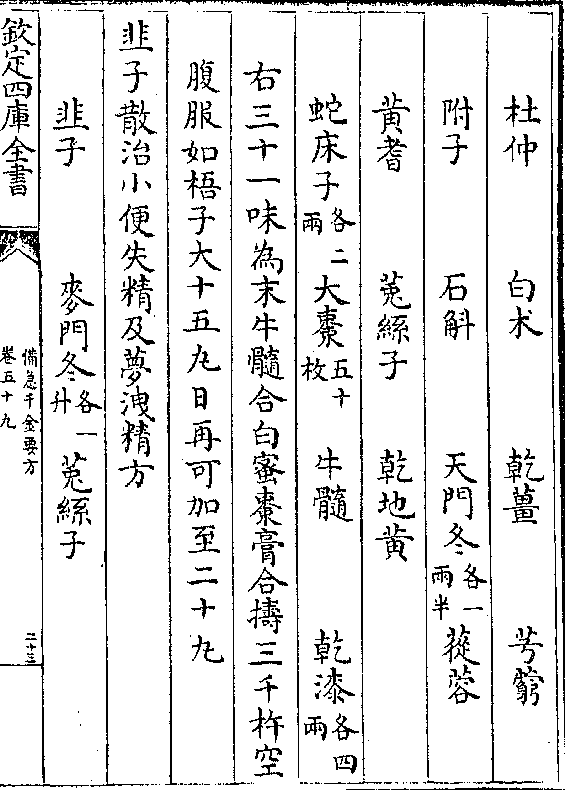 杜仲 白术 乾薑 芎藭
附子 石斛 天門冬各一兩半 蓯蓉
黄耆 菟絲子 乾地黄
蛇床子各二兩 大棗五十枚 牛髓 乾漆各四兩
右三十一味為末牛髓合白蜜棗膏合擣三千杵空
腹服如梧子大十五丸日再可加至二十丸
韭子散治小便失精及夢洩精方
韭子 麥門冬各一升 菟絲子
欽定四庫全書
備急千金要方
卷五十九
二十三